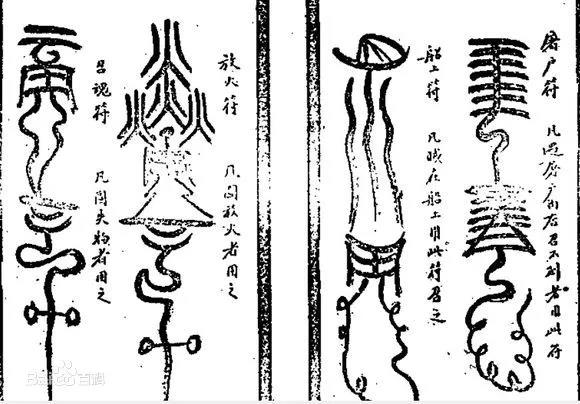 屠户符
凡遇屠户召不到者用此符
船上符
凡贼在船上用此符召之
放火符
凡放火者用之
魂符
凡失物者用之
Bai百科